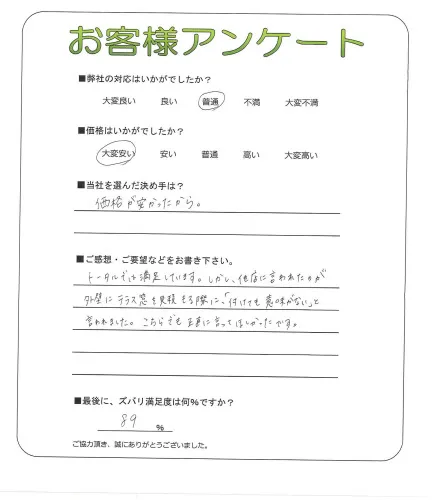 お客様アンケート
■弊社の対応はいかがでしたか？
大変良い 良い 普通 不満 大変不満
■価格はいかがでしたか？
大変安い 安い 普通 高い 大変高い
■当社を選んだ決め手は？
価格が安かったから。
■ご感想・ご要望などをお書き下さい。
トータルでは満足しています。しかし、他店に言われたのが
外壁にテラス窓を見積もる際に、「付けても意味がない」と
言われました。こちらでも正直に言ってほしかったです。
■最後に、ズバリ満足度は何％ですか？
89 %
ご協力頂き、誠にありがとうございました。